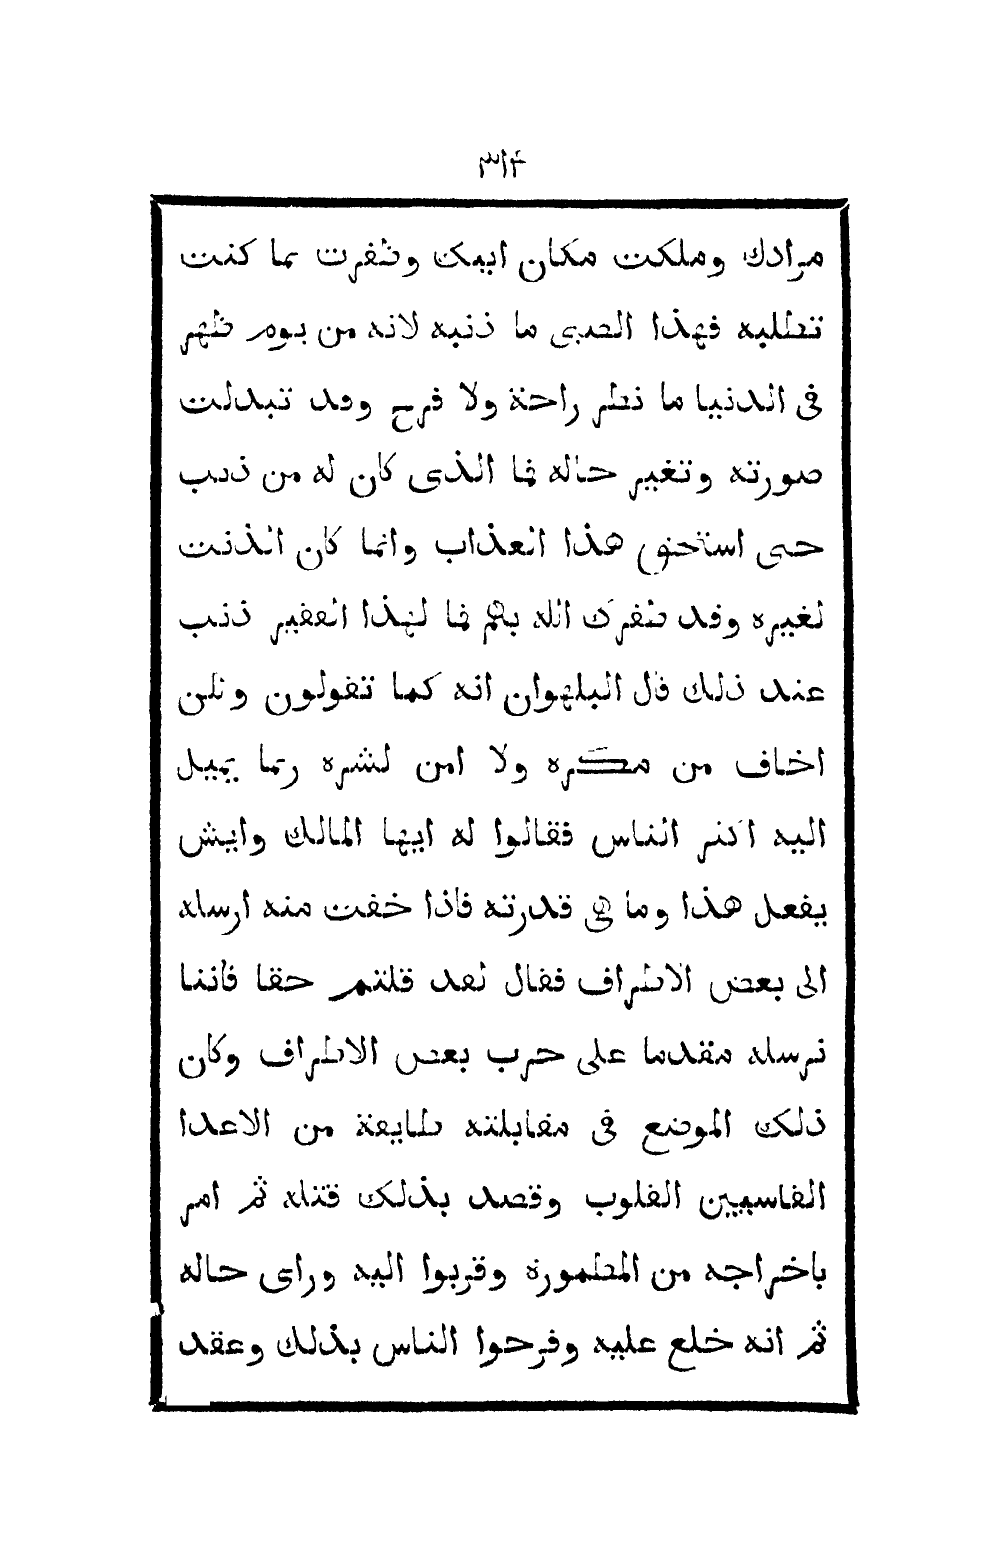 ۳۱۴
مرادك وملكت مكان ابيك وظفرت بما كنت
تطلبه فهذا الصبى ما ذنبه لانه من يوم ظهر
فى الدنيا ما نظر راحة ولا فرح وقد تبدلت
صورته وتغير حاله فما الذى كان له من ذنب
حتى استحق هذا العذاب وانما كان الذنب
لغيره وقد ظفرك الله بهم فما لهذا الفقير ذنب
عند ذلك قال البلهوان انه كما تقولون ولكن
اخاف من مكره ولا امن لشره ربما يميل
اليه اكثر الناس فقالوا له ايها المالك وايش
يفعل هذا وما هى قدرته فاذا خفت منه ارسله
الى بعض الاطراف فقال لقد قلتم حقا فاننا
نرسله مقدما على حرب بعض الاطراف وكان
ذلك الموضع فى مقابلته طايفة من الاعدا
القاسيين القلوب وقصد بذلك قتله ثم امر
باخراجه من المطمورة وقربوا اليه وراى حاله
ثم انه خلع عليه وفرحوا الناس بذلك وعقد